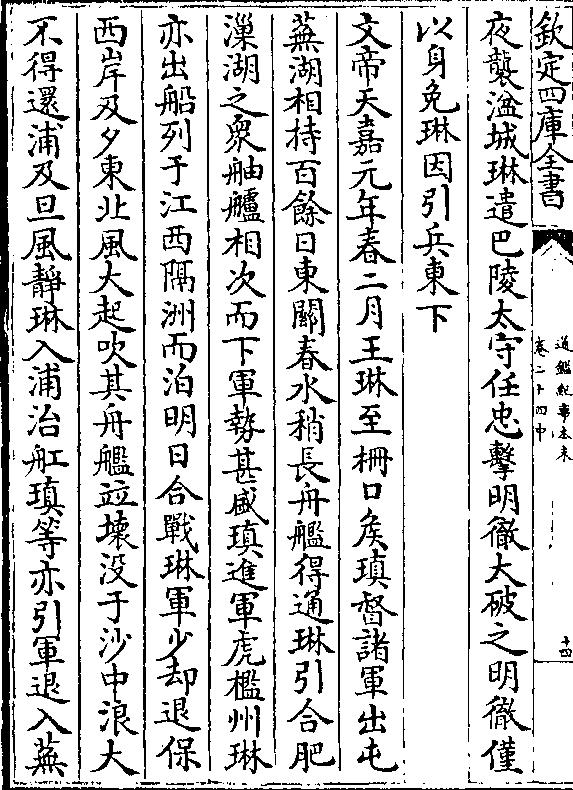 欽定四庫全書
通鑑紀事本末
卷二十四中
十四
夜襲湓城琳遣巴陵太守任忠擊明徹大破之明徹僅
以身免琳因引兵東下
文帝天嘉元年春二月王琳至柵口矦瑱督諸軍出屯
蕪湖相持百餘日東關春水稍長舟艦得通琳引合肥
漅湖之衆舳艫相次而下軍勢甚盛瑱進軍虎檻州琳
亦出船列于江西隔洲而泊明日合戰琳軍少却退保
西岸及夕東北風大起吹其舟艦竝壊没于沙中浪大
不得還浦及旦風靜琳入浦治舡瑱等亦引軍退入蕪